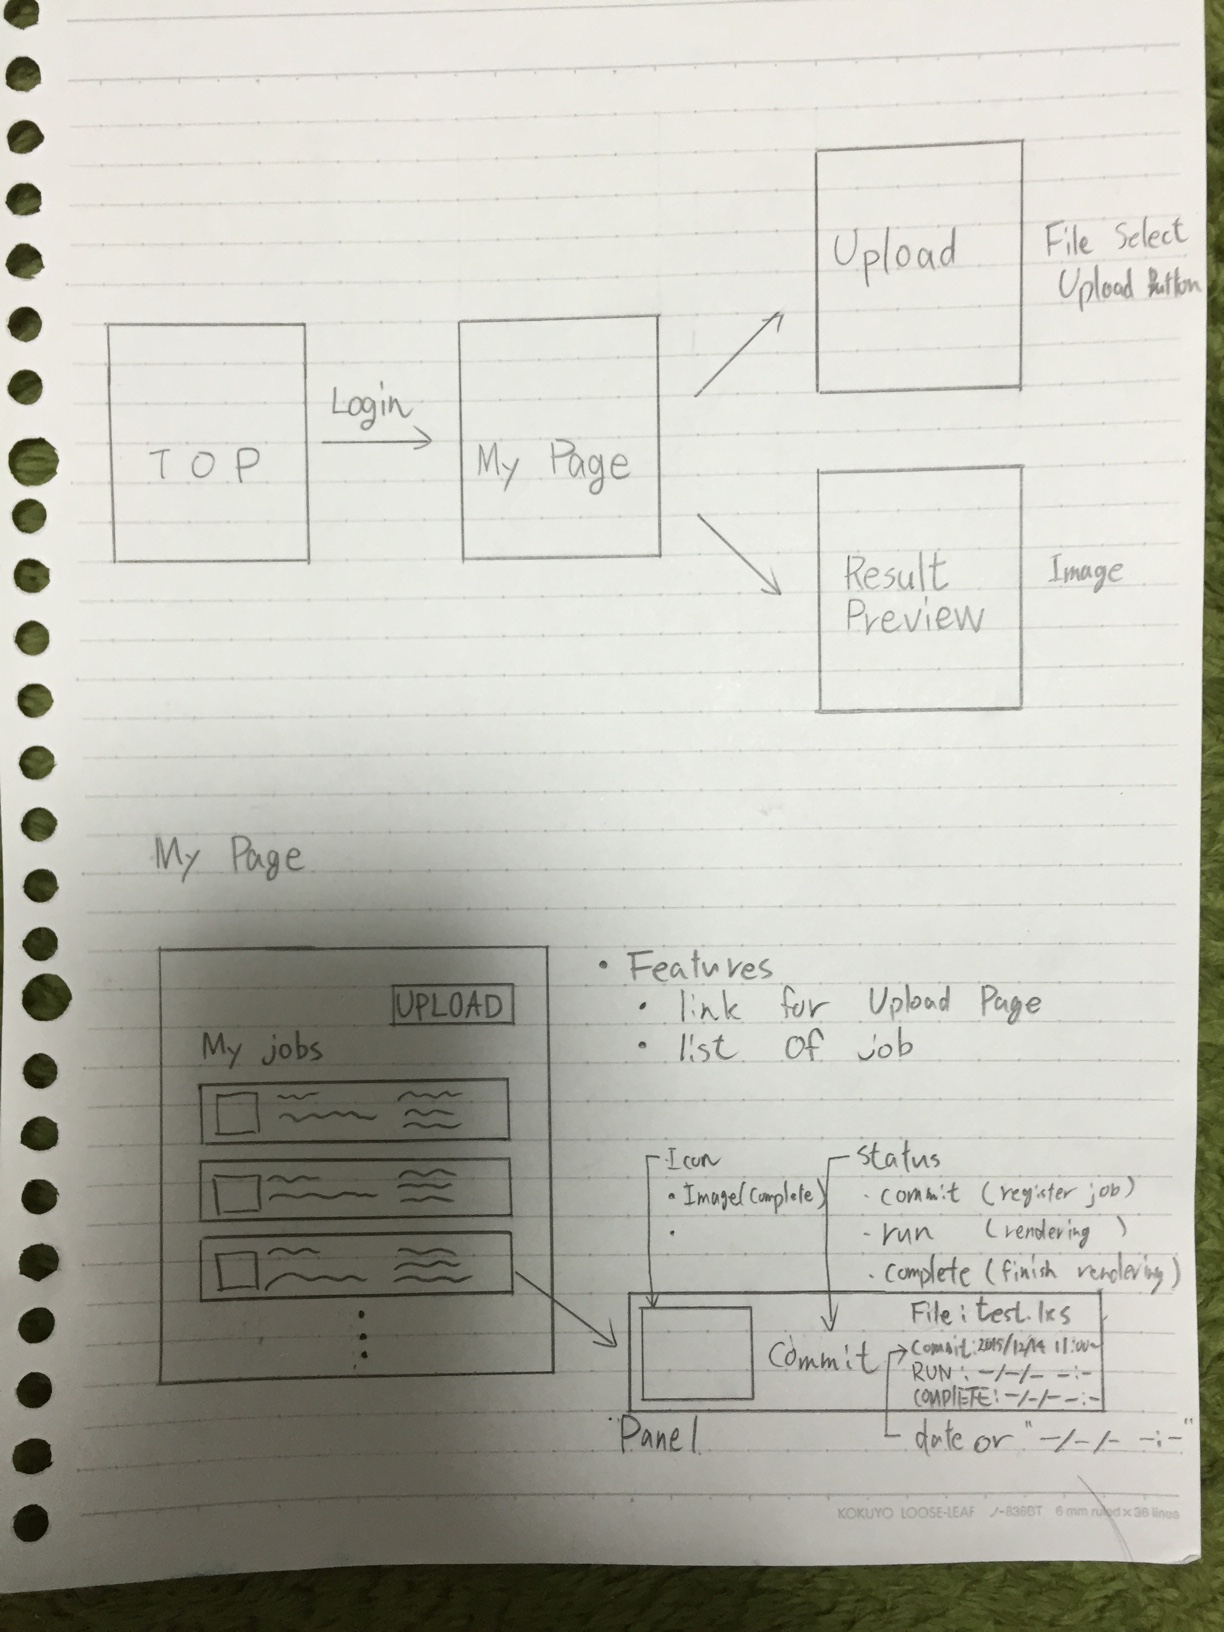 Upload
File Select
Upload Button
Login
TOP
My Page
Result
Preview
Image
My Page
UPLOAD
My jobs
• Features
• link for Upload Page
• list of job
Icon
• Image (complete)
•
status
・commit (register job)
・run (rendering)
・complete (finish rendering)
Commit
File : test.lxs
Commit : 2015/12/14 11:00
RUN : -/-/- -:-
COMPLETE : -/-/- -:-
Panel
date or "-/-/- -:-"
KOKUYO LOOSE-LEAF ノ-836BT 6 mm ruled × 36 lines